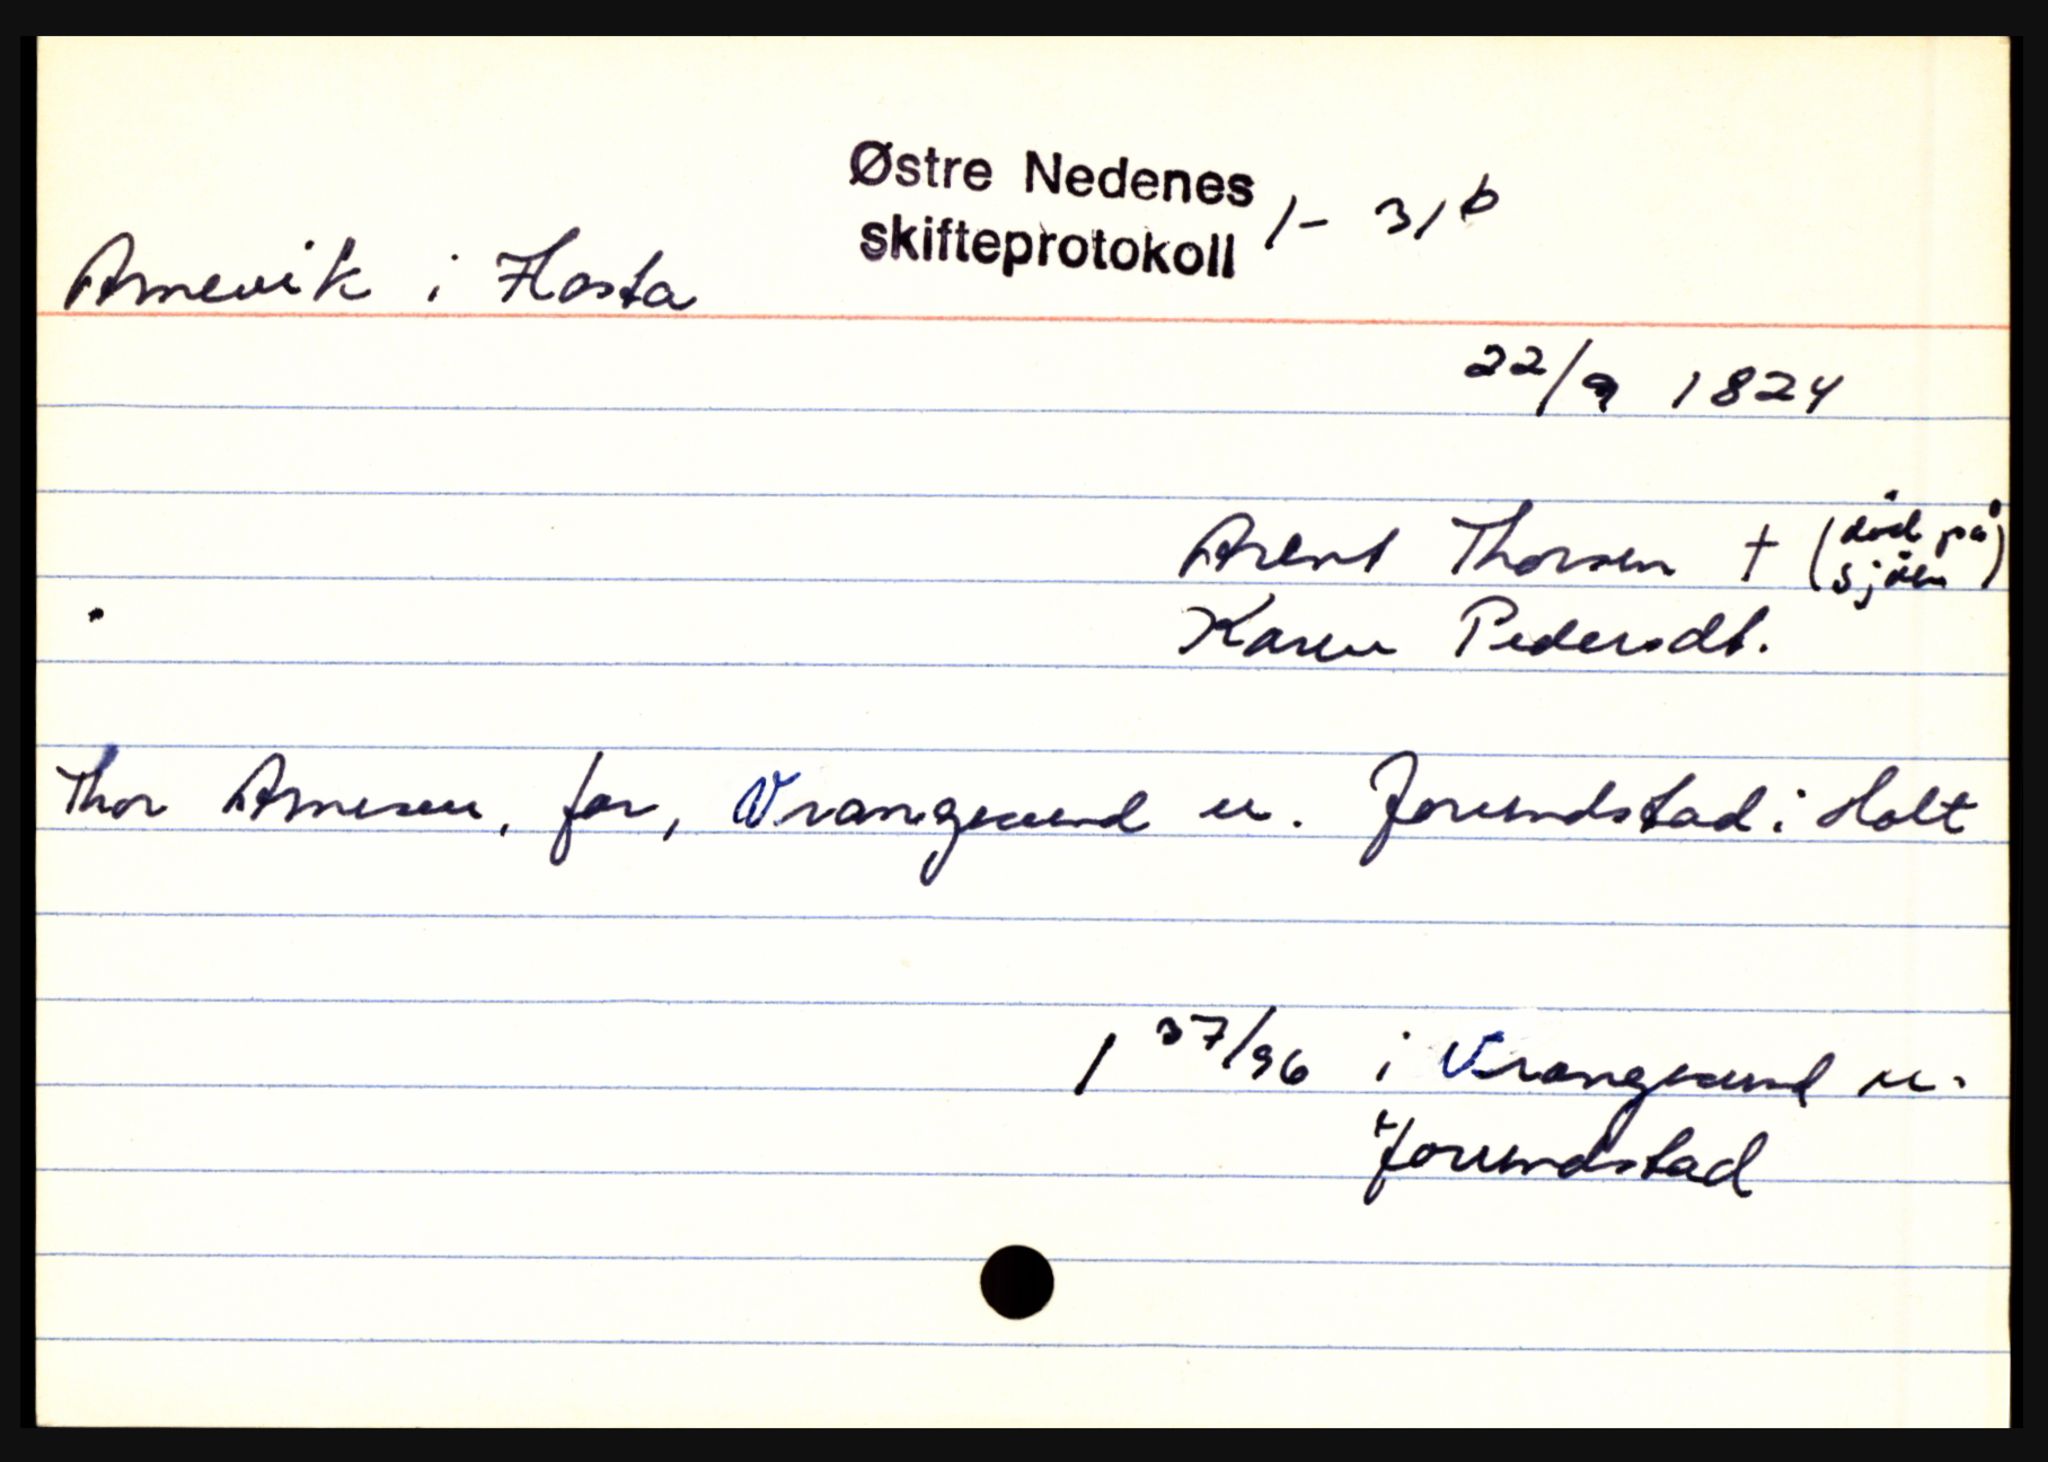 Østre Nedenes
skifteprotokoll 1- 31b
Arnevik i Flosta
22/9 1824
Arent Thorsen + (død på sjøen)
Karen Pedersdt.
Thor Arnesen, far, Vrangsund u. Jorundstad i Holt
1 37/96 i Vrangsund u.
Jorundstad